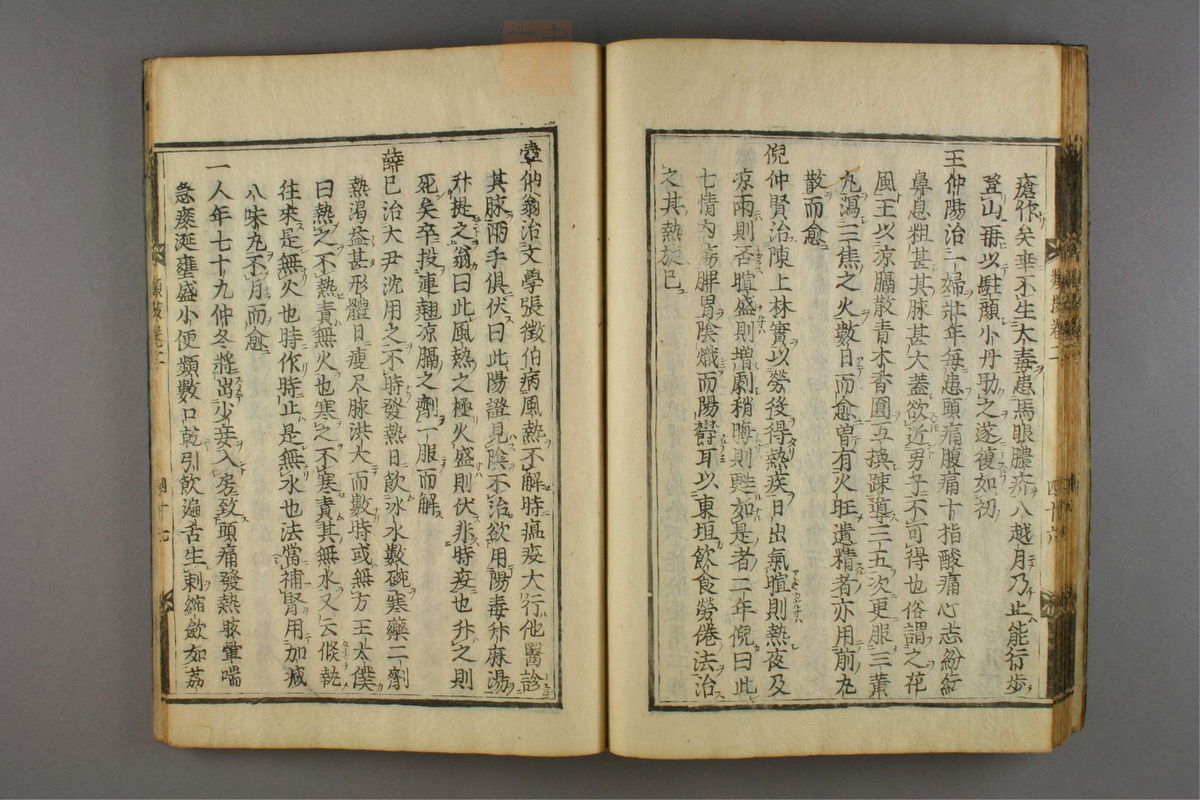 瘡作矣幸不生大毒患馬眼膿疥八越月乃止能行歩
登山毎以駐顔小丹助之遂復如初
王仲陽治一婦壮年毎患頭痛腹痛十指酸痛心志紛紜
鼻息粗甚其脉甚大蓋欲近男子不可得也俗謂之花
風王以凉膈散青木香圓互換踈導三五次更服三黄
丸瀉三焦之火數日而愈曽有火旺遺精者亦用前九
散而愈
倪仲賢治陳上林實以勞後得熱疾日出氣暄則熱夜及
凉雨則否暄盛則増劇稍晦則甦如是者二年倪曰此
七情内傷脾胃陰熾而陽欝耳以東垣飲食勞倦法治
之其熱旋已
類案巻二
四十六
壺仙翁治文學張徴伯病風熱不解時瘟疫大行他醫診
其脉兩手倶伏曰此陽證見陰不治欲用陽毒升麻湯
升提之翁曰此風熱之極火盛則伏非時疫也升之則
死矣卒投連翹凉膈之劑一服而解
薛已治大尹沈用之不時發熱日飲冰水數碗寒藥二劑
熱渇益甚形體日瘦尺脉洪大而數時或無方王太僕
曰熱之不熱責無火也寒之不寒責其無水又云倐熱
往來是無火也時作時止是無水也法當補腎用加减
八味丸不月而愈
一人年七十九仲冬將出少妾入房致頭痛發熱眩暈喘
急痰涎壅盛小便頻數口乾引飲遍舌生刺縮斂如荔
四十七